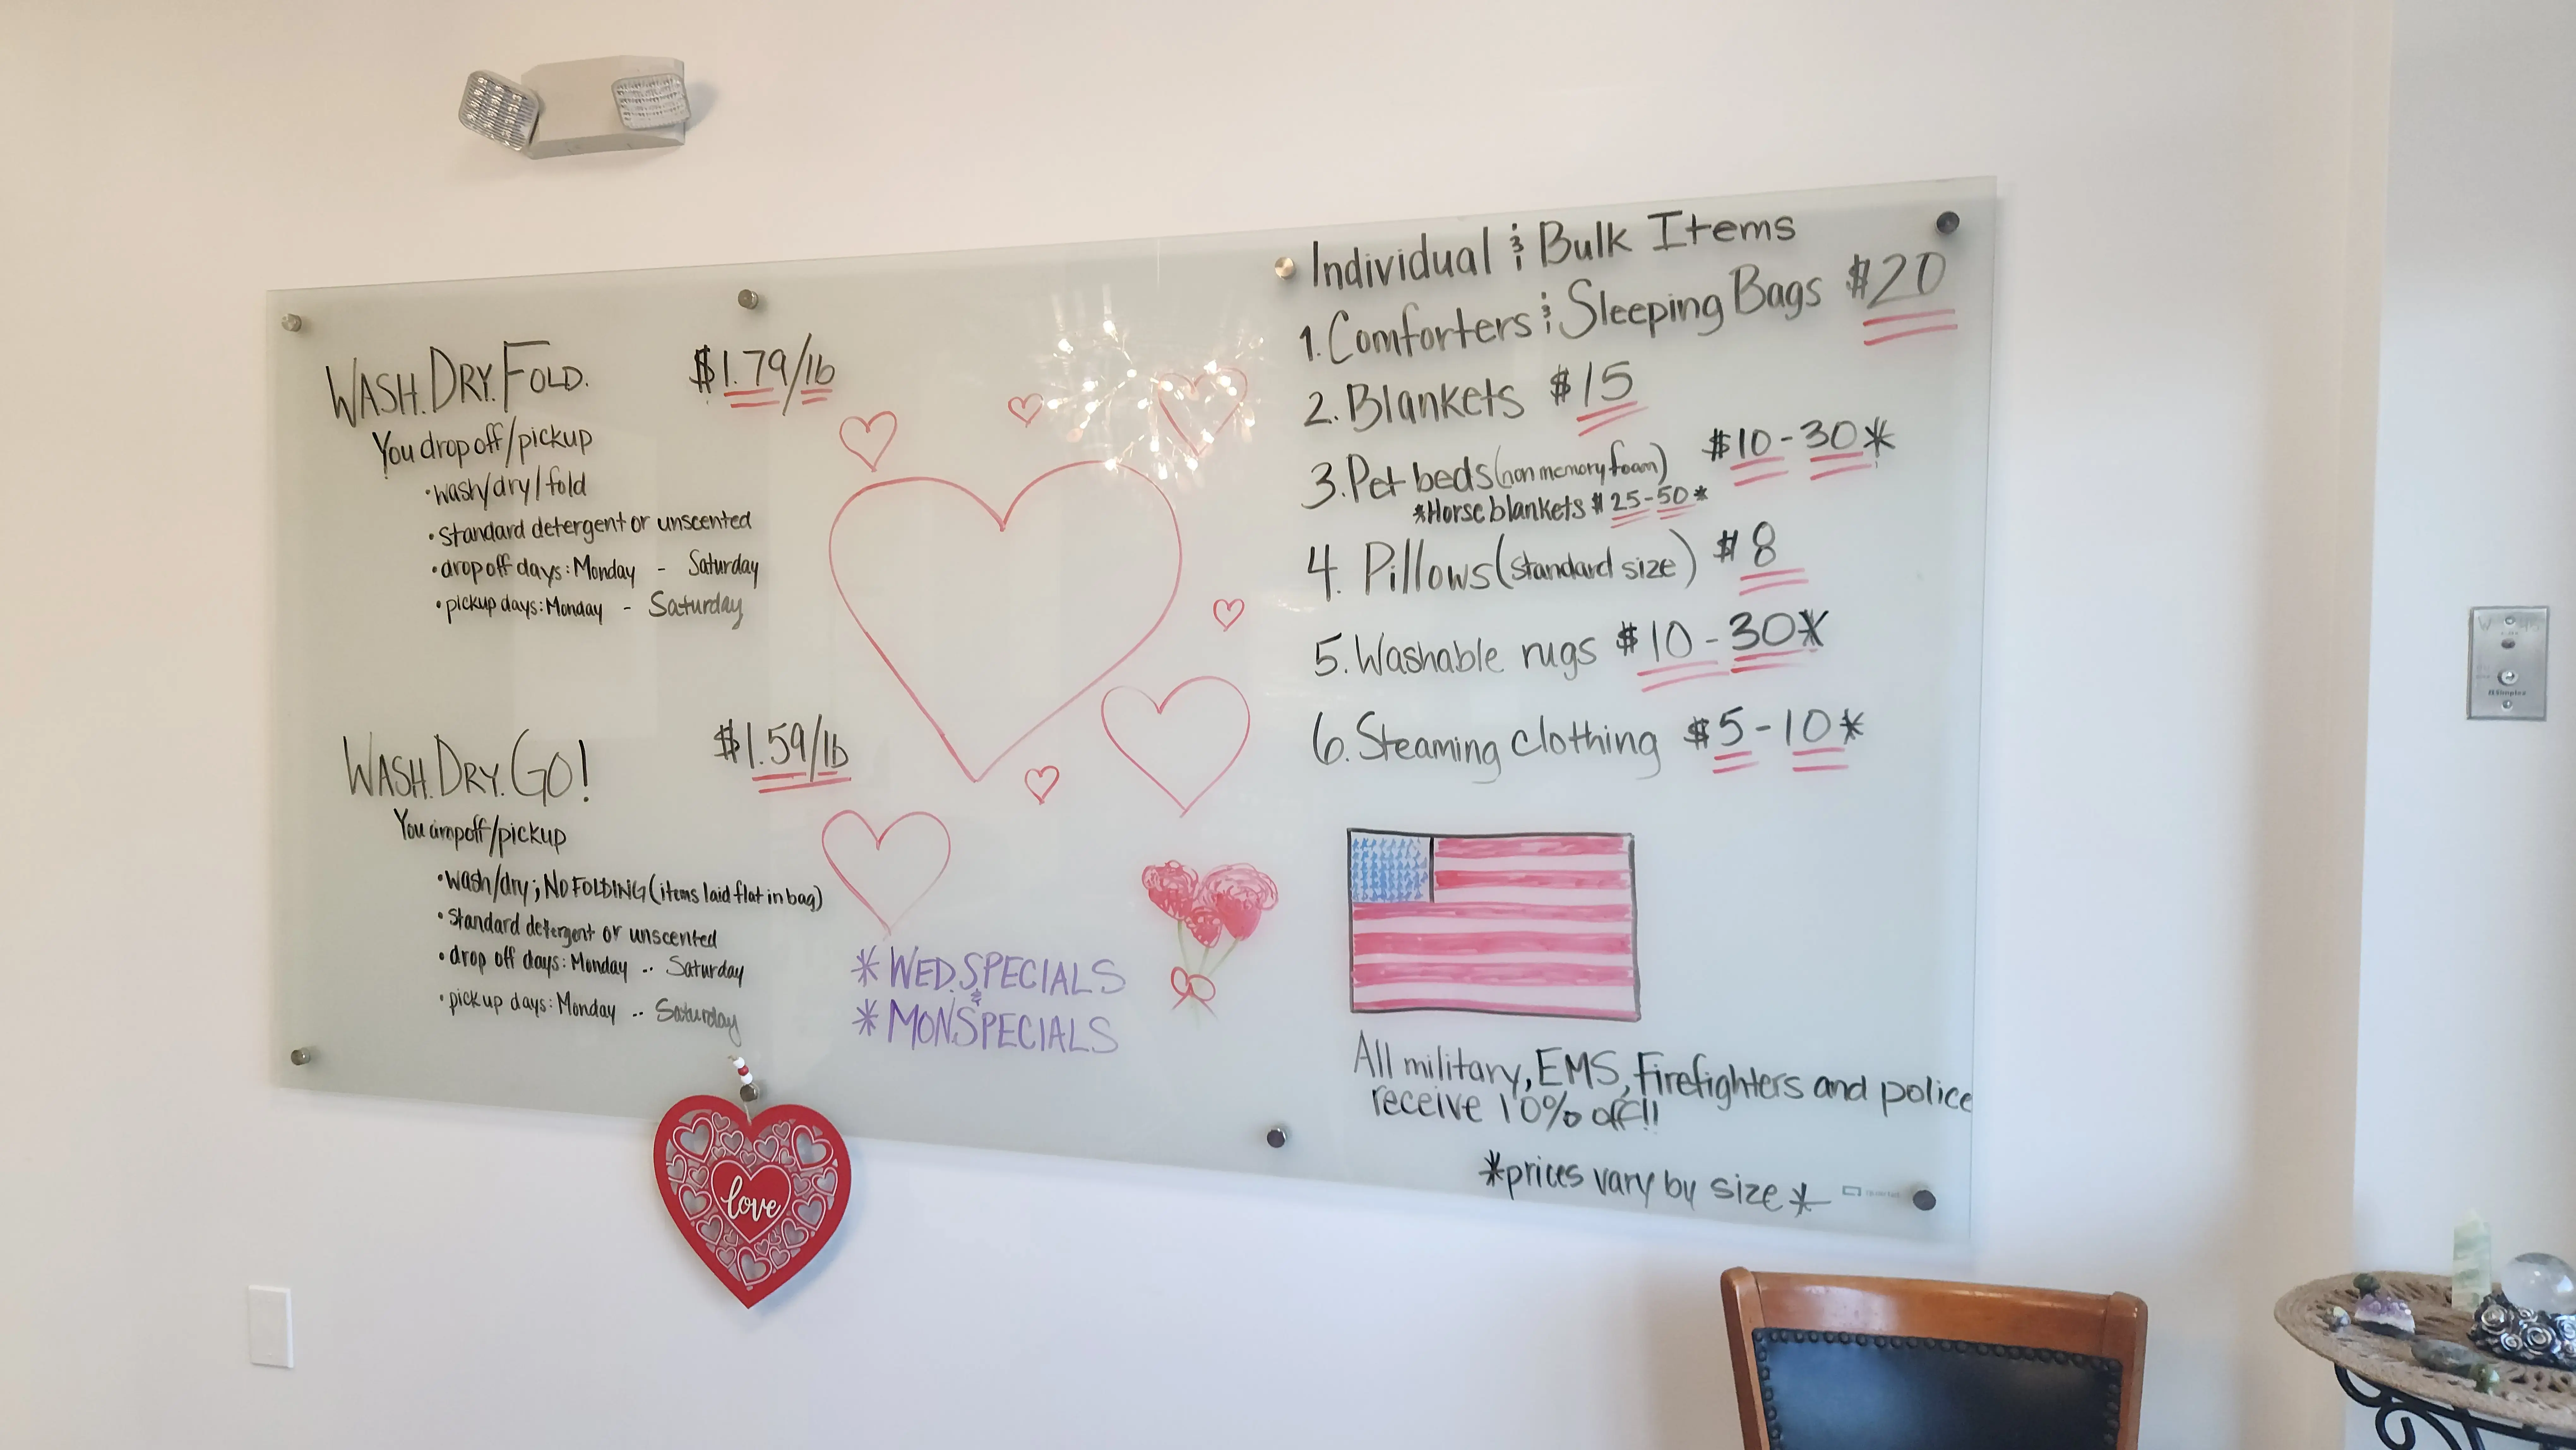 WASH. DRY. FOLD. $1.79/lb
You drop off/pickup
• wash/dry/fold
• standard detergent or unscented
• drop off days: Monday - Saturday
• pickup days: Monday - Saturday
WASH. DRY. GO! $1.59/lb
You drop off/pickup
• wash/dry; NO FOLDING (items laid flat in bag)
• standard detergent or unscented
• drop off days: Monday -- Saturday
• pickup days: Monday -- Saturday
* WED. SPECIALS
&
* MON. SPECIALS
love
Individual & Bulk Items
1. Comforters & Sleeping Bags $20
2. Blankets $15
3. Pet beds (non memory foam) $10-30*
*Horse blankets $25-50*
4. Pillows (standard size) $8
5. Washable rugs $10-30*
6. Steaming clothing $5-10*
All military, EMS, Firefighters and police
receive 10% off!!
*prices vary by size*
Simplex